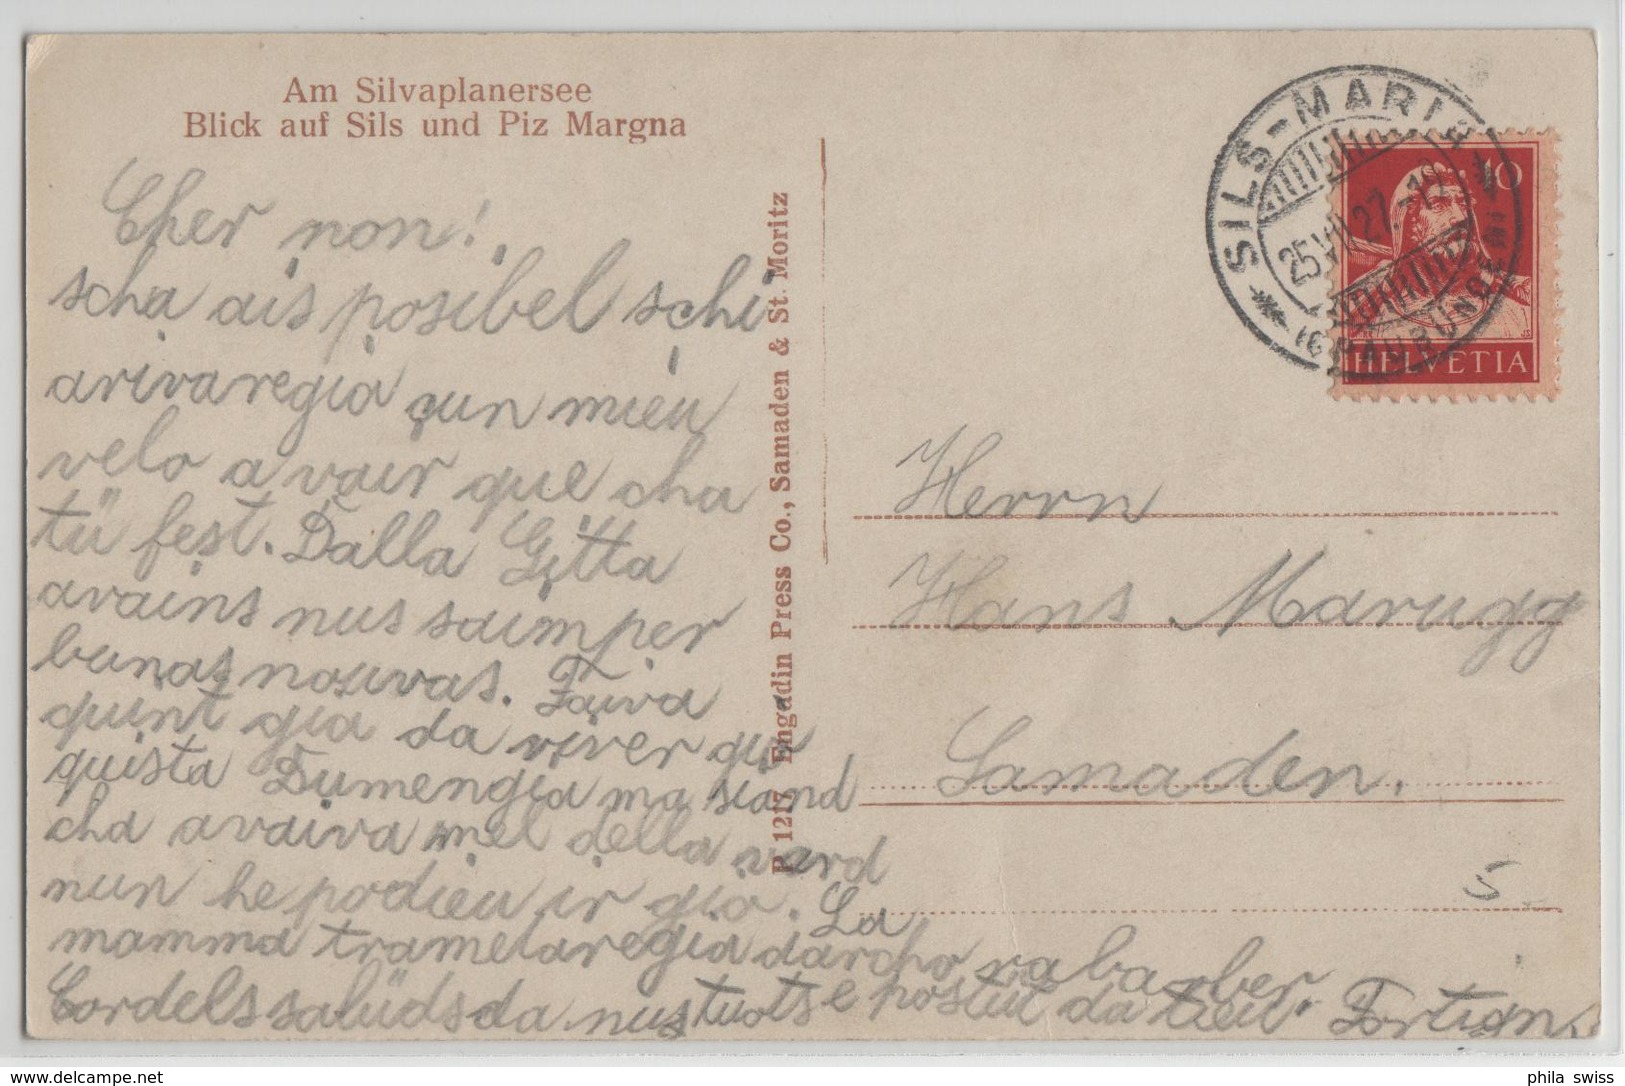 Am Silvaplanersee
Blick auf Sils und Piz Margna
Cher non!
scha ais posibel schi
arivaregia qun mieu
velo a vair que cha
tü fest. Dalla Gitta
avains nus saimper
bunas nouvas. Eaiva
quint gia da viver gio
quista Dumengia ma siand
cha avaiva mel della vard
nun he podieu ir gio. La
mamma trametaregia darcho rabarber
Cordels salüds da nus tuots e
postüt da tieu
R 1217 Engadin Press Co., Samaden & St. Moritz
SILS-MARIA
25.VII.27.-19
(GRAUBÜNDEN)
10
HELVETIA
Herrn
Hans Marugg
Samaden.
5.-
phila swiss